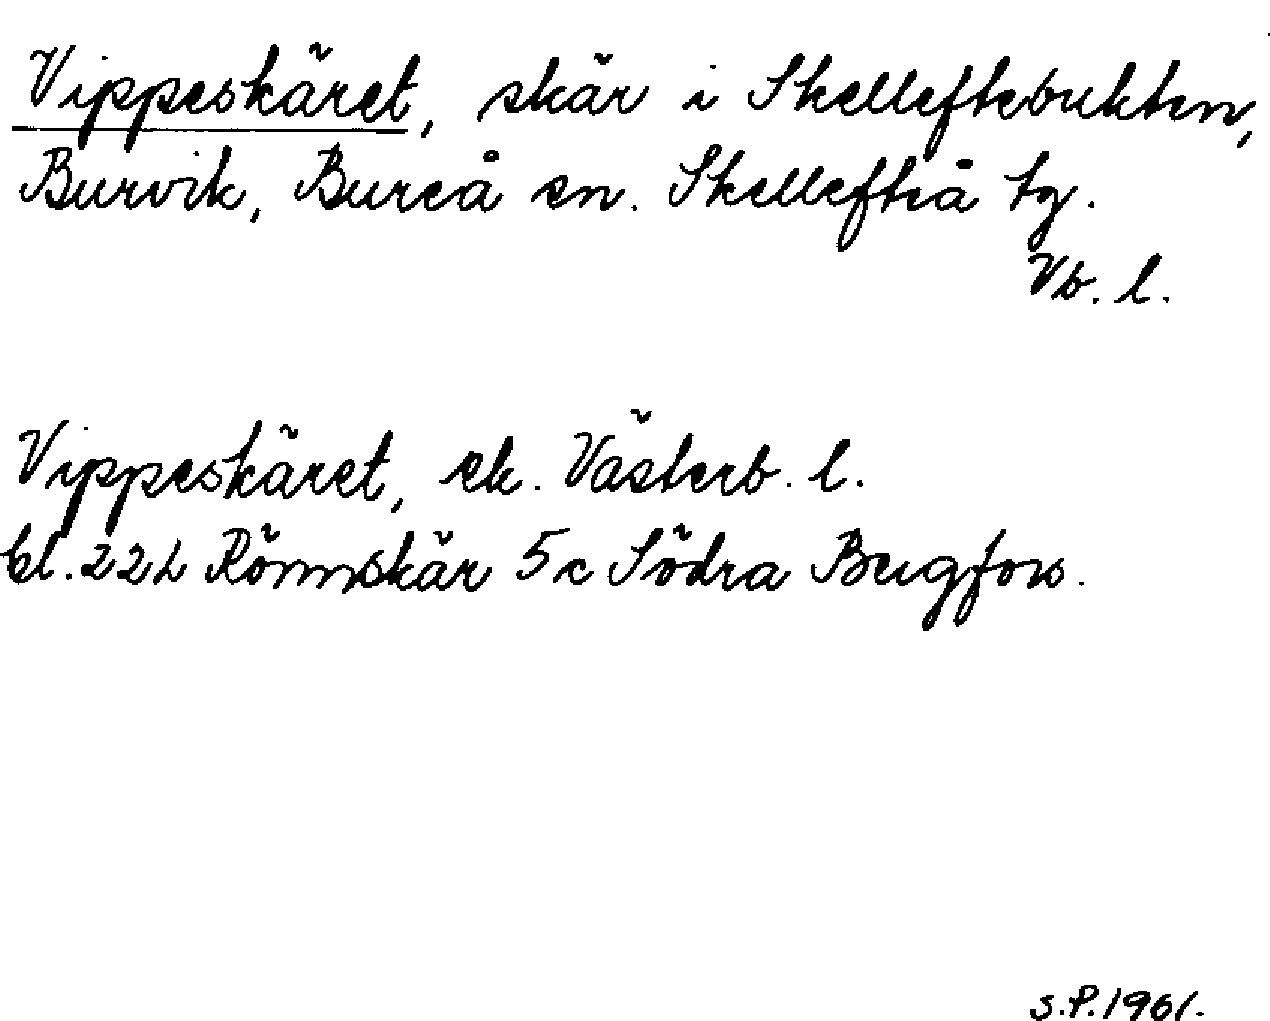 Vippeskäret, skär i Skelleftebukten,
Burvik, Bureå sn. Skellefteå tg.
Vb. l.
Vippeskäret, ek. Västerb. l.
bl. 22L Rönnskär 5c Södra Bugfors.
S.P. 1961.